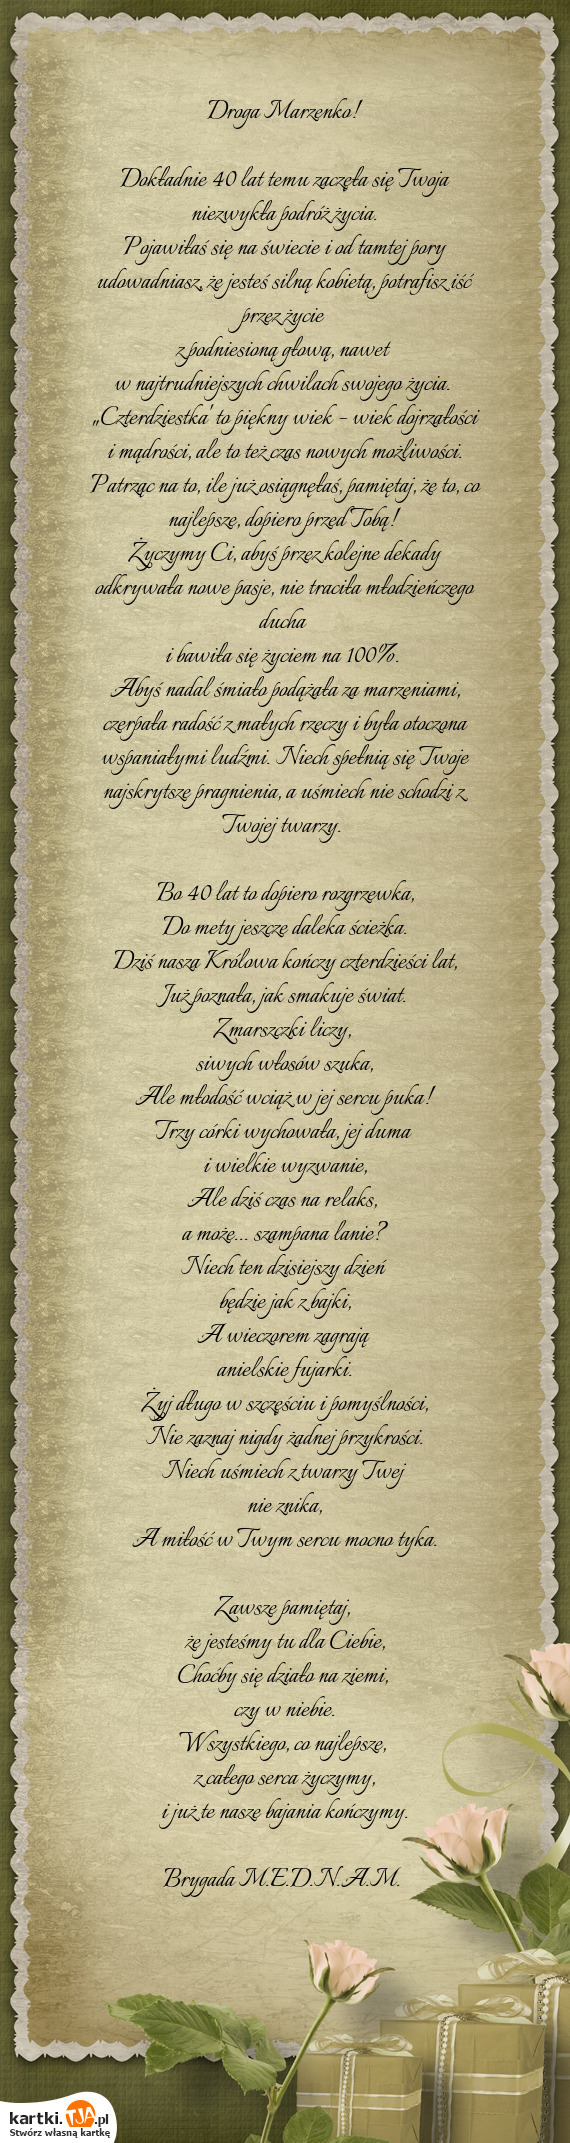 Droga Marzenko!
Dokładnie 40 lat temu zaczęła się Twoja
niezwykła podróż życia.
Pojawiłaś się na świecie i od tamtej pory
udowadniasz, że jesteś silną kobietą, potrafisz iść
przez życie
z podniesioną głową, nawet
w najtrudniejszych chwilach swojego życia.
„Czterdziestka' to piękny wiek - wiek dojrzałości
i mądrości, ale to też czas nowych możliwości.
Patrząc na to, ile już osiągnęłaś, pamiętaj, że to, co
najlepsze, dopiero przed Tobą!
Życzymy Ci, abyś przez kolejne dekady
odkrywała nowe pasje, nie traciła młodzieńczego
ducha
i bawiła się życiem na 100%.
Abyś nadal śmiało podążała za marzeniami,
czerpała radość z małych rzeczy i była otoczona
wspaniałymi ludźmi. Niech spełnią się Twoje
najskrytsze pragnienia, a uśmiech nie schodzi z
Twojej twarzy.
Bo 40 lat to dopiero rozgrzewka,
Do mety jeszcze daleka ścieżka.
Dziś nasza Królowa kończy czterdzieści lat,
Już poznała, jak smakuje świat.
Zmarszczki liczy,
siwych włosów szuka,
Ale młodość wciąż w jej sercu puka!
Trzy córki wychowała, jej duma
i wielkie wyzwanie,
Ale dziś czas na relaks,
a może... szampana lanie?
Niech ten dzisiejszy dzień
będzie jak z bajki,
A wieczorem zagrają
anielskie fujarki.
Żyj długo w szczęściu i pomyślności,
Nie zaznaj nigdy żadnej przykrości.
Niech uśmiech z twarzy Twej
nie znika,
A miłość w Twym sercu mocno tyka.
Zawsze pamiętaj,
że jesteśmy tu dla Ciebie,
Choćby się działo na ziemi,
czy w niebie.
Wszystkiego, co najlepsze,
z całego serca życzymy,
i już te nasze bajania kończymy.
Brygada M.E.D.N.A.M.
kartki.TJA.pl
Stwórz własną kartkę